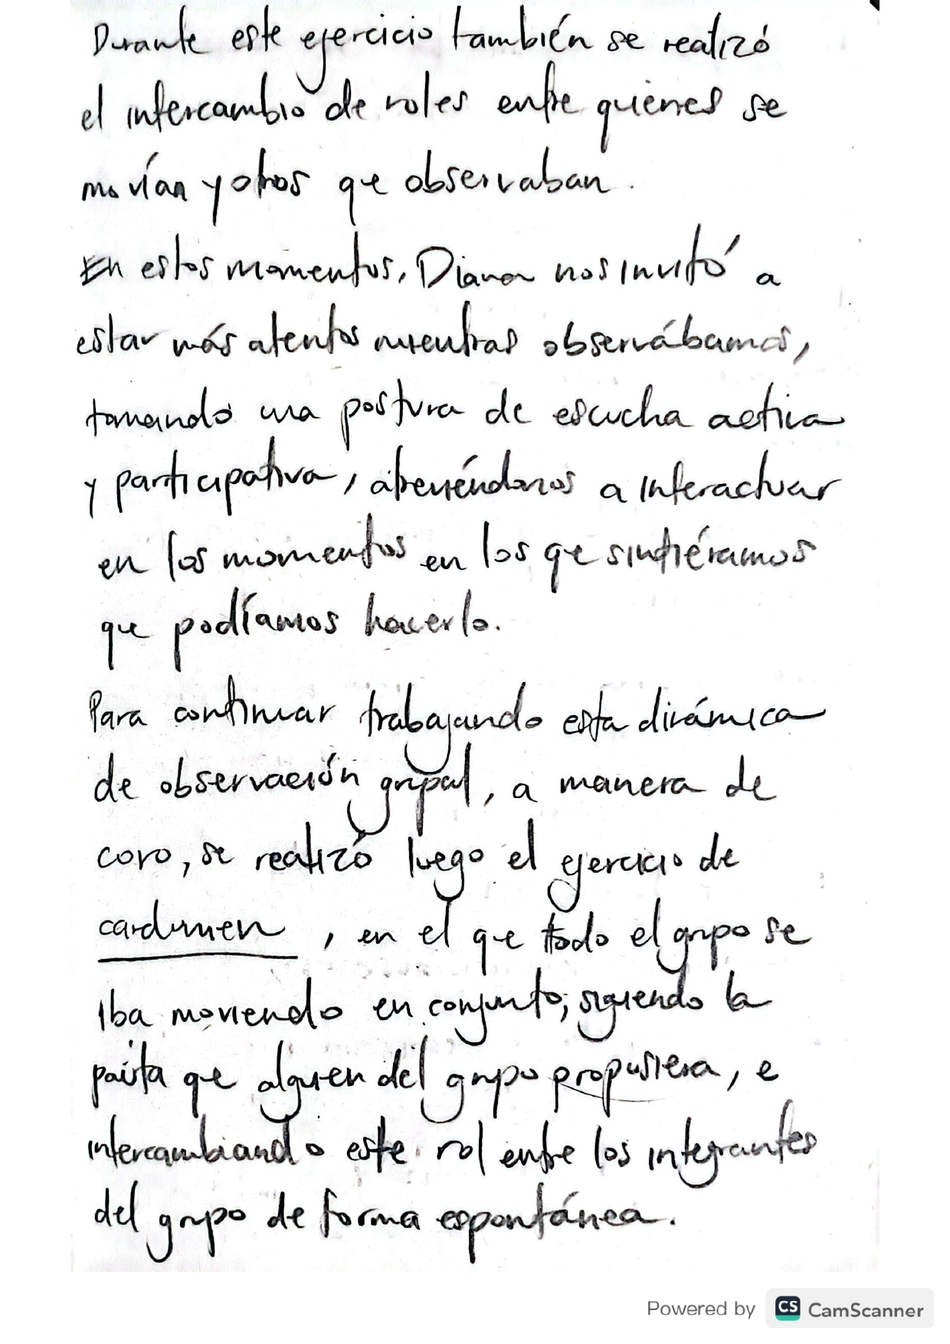 Durante este ejercicio también se realizó
el intercambio de roles entre quienes se
movían y otros que observaban.
En estos momentos, Diana nos invitó a
estar más atentos mientras observábamos,
tomando una postura de escucha activa
y participativa, atreviéndonos a interactuar
en los momentos en los que sintiéramos
que podíamos hacerlo.
Para continuar trabajando esta dinámica
de observación grupal, a manera de
coro, se realizó luego el ejercicio de
cardumen, en el que todo el grupo se
iba moviendo en conjunto, siguiendo la
pauta que alguien del grupo propusiera, e
intercambiando este rol entre los integrantes
del grupo de forma espontánea.
Powered by CS CamScanner